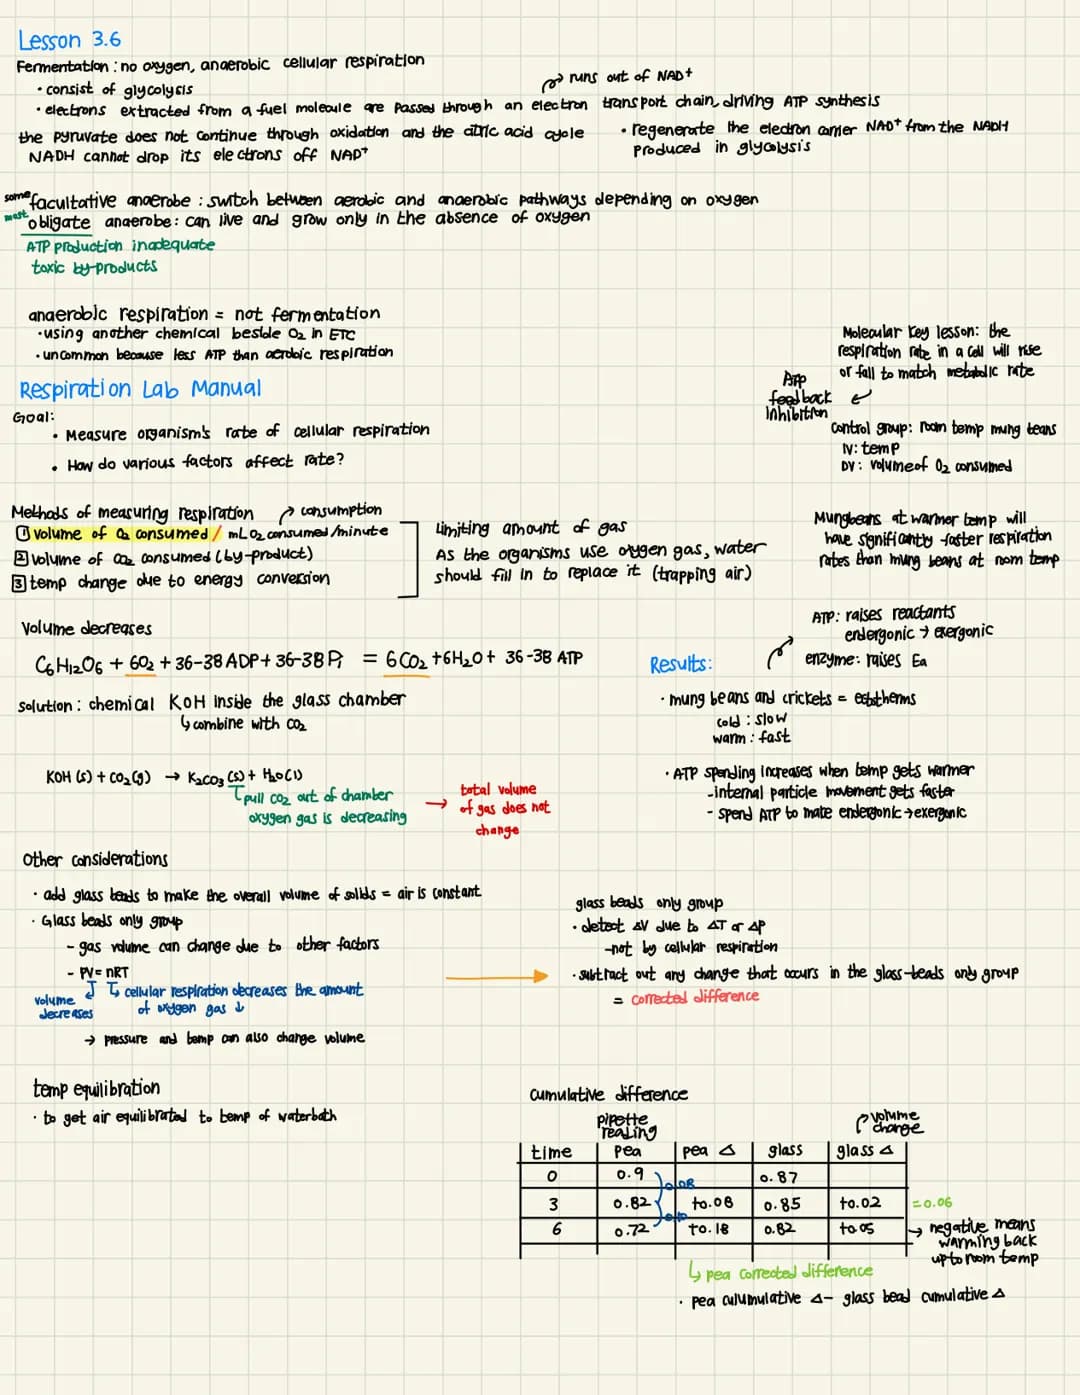 Lesson 3.6
Fermentation : no oxygen, anaerobic cellular respiration
• consist of glycolysis
→ runs out of NAD+
• electrons extracted from a fuel molecule are passed through an electron transport chain, driving ATP synthesis
the pyruvate does not continue through oxidation and the citric acid cycle
NADH cannot drop its electrons off NAD+
• regenerate the electron carrier NAD+ from the NADH
produced in glycolysis
some facultative anaerobe : switch between aerobic and anaerobic pathways depending on oxygen
most obligate anaerobe : can live and grow only in the absence of oxygen
ATP production inadequate
toxic by-products
anaerobic respiration = not fermentation
• using another chemical beside O2 in ETC
• uncommon because less ATP than aerobic respiration
Molecular key lesson: the
respiration rate in a cell will rise
or fall to match metabolic rate
ATP
feedback
inhibition
Control group: room temp mung beans
IV: temp
DV: volume of O2 consumed
Respiration Lab Manual
Goal:
• Measure organism's rate of cellular respiration
• How do various factors affect rate?
Methods of measuring respiration → consumption
① volume of O2 consumed / mL O2 consumed/minute
② volume of CO2 consumed (by-product)
③ temp change due to energy conversion
limiting amount of gas
As the organisms use oxygen gas, water
should fill in to replace it (trapping air)
Mungbeans at warmer temp will
have significantly faster respiration
rates than mung beans at room temp
Volume decreases
C6H12O6 + 6O2 + 36-38 ADP + 36-38 Pi = 6CO2 + 6H2O + 36-38 ATP
solution : chemical KOH inside the glass chamber
↳ combine with CO2
KOH (s) + CO2 (g) → K2CO3 (s) + H2O (l)
pull CO2 out of chamber
oxygen gas is decreasing
→ total volume
of gas does not
change
ATP: raises reactants
endergonic → exergonic
enzyme: raises Ea
Results:
• mung beans and crickets = ectotherms
cold : slow
warm : fast
• ATP spending increases when temp gets warmer
- internal particle movement gets faster
- spend ATP to make endergonic → exergonic
Other considerations
• add glass beads to make the overall volume of solids = air is constant
• Glass beads only group
- gas volume can change due to other factors
- PV = nRT
volume
decreases
↳ cellular respiration decreases the amount
of oxygen gas ↓
→ pressure and temp can also change volume
glass beads only group
• detect ΔV due to ΔT or ΔP
-not by cellular respiration
• subtract out any change that occurs in the glass-beads only group
= corrected difference
temp equilibration
• to get air equilibrated to temp of waterbath
cumulative difference
pipette
reading
→ volume
change
time pea pea Δ glass glass Δ
0 0.9 0.87
0.08
3 0.82 +0.08 0.85 +0.02 = 0.06
0.10
6 0.72 +0.18 0.82 +0.05
→ negative means
warming back
up to room temp
↳ pea corrected difference
• pea culumulative Δ - glass bead cumulative Δ